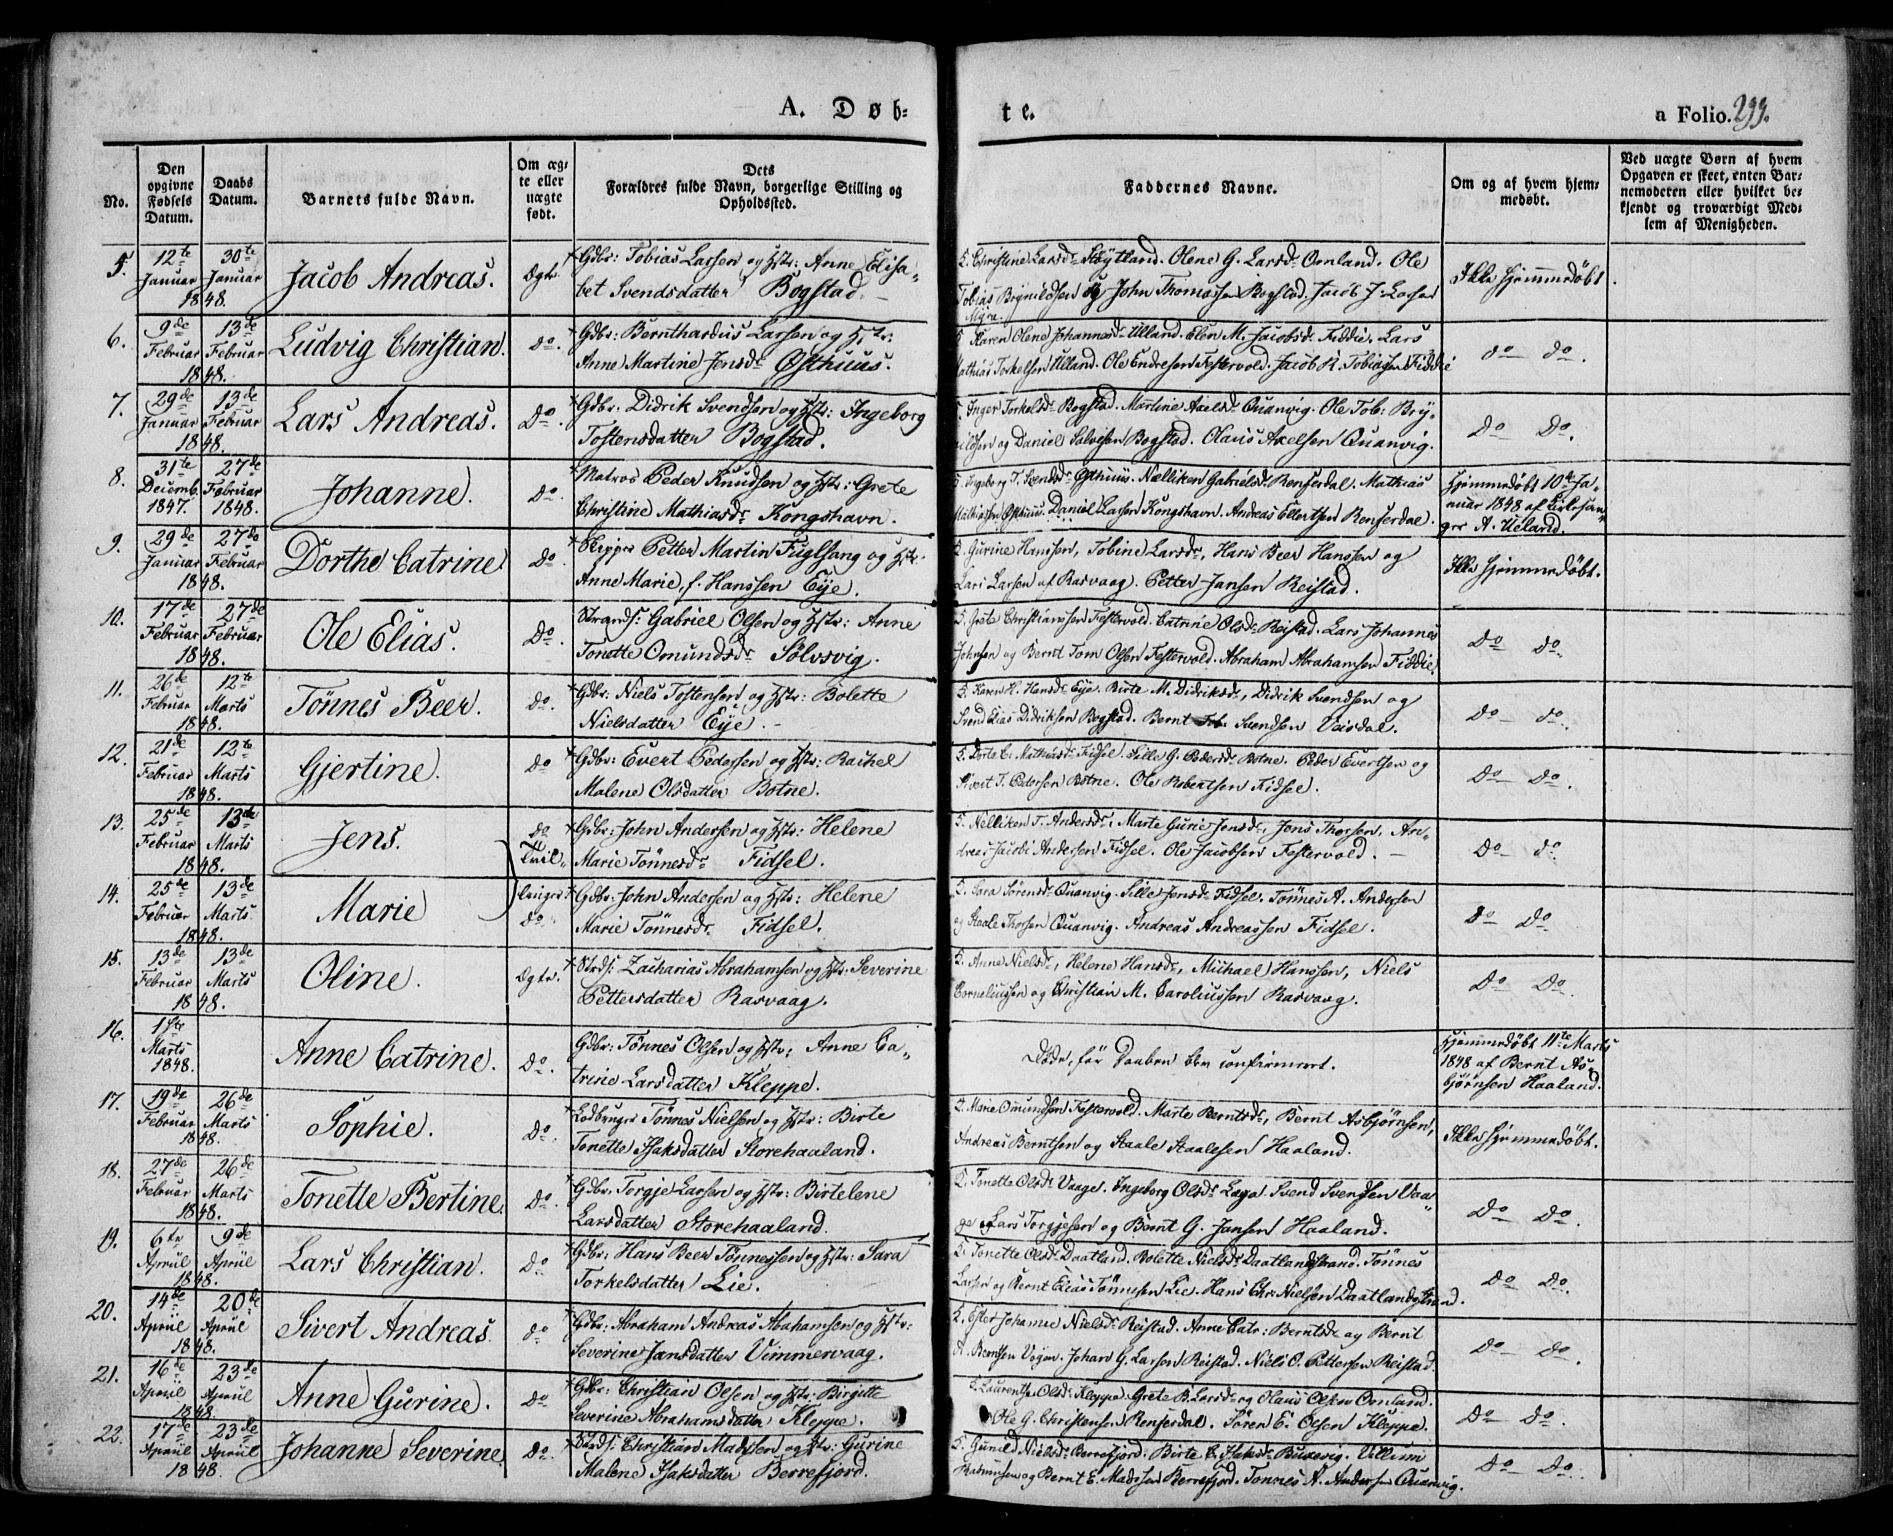 A. Døb-
te.
a Folio. 299.
No.
Den opgivne Fødsels Datum.
Daabs Datum.
Barnets fulde Navn.
Om ægte eller uægte født.
Dets Forældres fulde Navn, borgerlige Stilling og Opholdssted.
Faddernes Navne.
Om og af hvem hjemmedøbt.
Ved uægte Børn af hvem Opgaven er skeet, enten Barnemoderen eller hvilket bekjendt og troværdigt Medlem af Menigheden.
5. 12te Januar 1848. 30te Januar Jacob Andreas. Ægte Gdbr: Tobias Larsen og Hstr: Anne Elisa-
bet Svendsdatter Bogstad.
5. Christine Larsdr Skøytland. Olene G. Larsdr Omland. Ole
Tobias Brynildsen og John Thomassen Bogstad. Jacob J. Larsen Myra.
Ikke hjemmedøbt.
6. 9de Februar 1848. 13de Februar Ludvig Christian. do. Gdbr: Bernthardus Larsen og Hstr:
Anne Martine Jensdr Østhuus.
5 Karen Olene Johannesdr Ulland. Elen M. Jacobsdr Fiddie. Lars
Mathias Torkelsen Ulland. Ole Endresen Festervold. Jacob K. Tobiasen Fiddie
do do.
7. 29de Januar 1848. 13de Februar Lars Andreas. Do. Gdbr: Didrik Svendsen og Hstr: Ingeborg
Tostensdatter Bogstad.
5. Inger Torkelsdr Bogstad. Martine Axelsdr Quanvig. Ole Tob: Bry-
nildsen og Daniel Salvesen Bogstad. Olaus Axelsen Quanvig.
Do Do.
8. 31te Decemb. 1847. 27de Februar 1848. Johanne. Do. Matros Peder Knudsen og Hstr: Grete
Christine Mathiasdr Kongshavn.
5. Ingeborg T. Svendsdr Østhuus. Nelliken Gabrielsdr Renserdal. Mathias
Mathiasen Østhuus. Daniel Larsen Kongshavn. Andreas Ellertsen Renserdal.
Hjemmedøbt 10de Ja-
nuar 1848 af Kirkesan-
ger A. Ueland.
9. 29de Januar 1848. 27de Februar Dorthe Catrine Do. Skipper Petter Martin Fuglsang og Hstr.
Anne Marie, f. Hanssen Eye.
5. Gurine Hanssen, Tobine Larsdr, Hans Beer Hanssen og
Lars Larsen af Rasvaag. Petter Jansen Reistad.
Ikke hjemmedøbt.
10. 17de Februar 1848. 27de Februar Ole Elias. Do. Strands: Gabriel Olsen og Hstr: Anne
Tonette Omundsdr Sølvsvig.
5. Grete Christiansen Festervold. Catrine Olsdr Reistad. Lars Johannes
Johnsen og Bernt Tom Olsen Festervold. Abraham Abrahamsen Fiddie.
Do do.
11. 26de Februar 1848. 12te Marts Tönnes Beer. Do. Gdbr: Niels Tostensen og Hstr: Bolette
Nielsdatter Eye.
5. Karen H. Hansdr Eye. Birte M. Didriksdr, Didrik Svendsen og
Svend Elias Didriksen Bogstad. Bernt Svendsen Veisdal.
Do do.
12. 21de Februar 1848. 12te Marts Gjertine. Do Gdbr: Evert Pedersen og Hstr: Rachel
Malene Olsdatter Botne.
5. Dorte C. Mathiasdr Fidsel. Sille G. Pedersdr Botne. Peder Evertsen og
Sivert T. Pedersen Botne. Ole Robertsen Fidsel.
Do Do.
13. 25de Februar 1848. 13de Marts Jens. do Tvil- Gdbr: John Andersen og Hstr: Helene
Marie Tönnesdr Fidsel.
5. Nelliken T. Andersdr, Marte Gurie Jensdr, Jens Thorsen, An-
dreas Jacobi Andersen Fidsel. Ole Jacobsen Festervold.
Do do.
14. 25de Februar 1848. 13de Marts Marie linger do. Gdbr: John Andersen og Hstr: Helene
Marie Tönnesdr Fidsel.
5. Sara Sørensdr Quanvig. Sille Jensdr Fidsel. Tönnes A. Andersen
og Staale Thorsen Quanvig. Andreas Andreassen Fidsel.
Do Do.
15. 13de Februar 1848. 13de Marts Oline. Ægte. Strds: Zacharias Abrahamsen og Hstr: Severine
Pettersdatter Rasvaag.
5. Anne Nielsdr, Helene Hansdr, Michael Hanssen, Niels
Corneliussen og Christian M. Caroliussen Rasvaag.
Do Do.
16. Marts 1848. Anne Catrine. Do. Gdbr: Tönnes Olsen og Hstr: Anne Ca-
trine Larsdatter Kleppe.
Døde, før Daaben blev confirmeret.
Hjemmedøbt 11te Marts
1848 af Bernt As-
bjørnsen Haaland.
17. 19de Februar 1848. 26de Marts Sophie. Do. Lodbruger Tönnes Nielsen og Hstr: Birte
Tonette Isaksdatter Storehaaland.
5. Marie Omundsen Festervold. Marte Berntsdr, Bernt Asbjørnsen,
Andreas Berntsen og Staale Staalesen Haaland.
Ikke hjemmedøbt.
18. 27de Februar 1848. 26de Marts Tonette Bertine. Do. Gdbr: Torgje Larsen og Hstr: Birtelene
Larsdatter Storehaaland.
5. Tonette Olsdr Vaage. Ingeborg Olsdr Svend Svensen Vaa-
ge. Lars Torgjesen og Bernt G. Jansen Haaland.
Do Do.
19. 6te Apriil 1848. 9de Apriil Lars Christian. Do Gdbr: Hans Beer Tönnessen og Hstr: Sara
Torkelsdatter Lie.
5. Tonette Olsdr Daatland. Bolette Nielsdr Daatlandstrand. Tönnes
Larsen og Bernt Elias Tönnesen Lie. Hans Chr: Nielsen Daatlandstrand.
Do Do.
20. 14de Apriil 1848. 20de Apriil Sivert Andreas. do Gdbr. Abraham Andreas Abrahamsen og Hstr:
Severine Jansdatter Vimmervaag.
5. Ester Johanne Nielsdr Reistad. Anne Catr: Berntsdr og Bernt
A. Berntsen Vogan. Johan G. Larsen Reistad. Niels O. Pettersen Reistad
Do Do.
21. 16de Apriil 1848. 23de Apriil Anne Gurine. Do Gdbr: Christian Olsen og Hstr: Birgitte
Severine Abrahamsdatter Kleppe.
5. Laurentse Olsdr Kleppe. Grete B. Larsdr og Olaus Olsen Omland.
Ole G. Christensen Renserdal. Søren E. Olsen Kleppe.
Do Do.
22. 17de Apriil 1848. 23de Apriil Johanne Severine. Do. Strds: Christian Madssen og Hstr: Gurine
Malene Isaksdatter Berrefjord.
5. Gunild Nielsdr Berrefjord. Birte C. Isaksdr Busevig. Villum
Rasmussen og Bernt E. Madssen Berrefjord. Tönnes A. Andersen Quanvig.
Do Do.